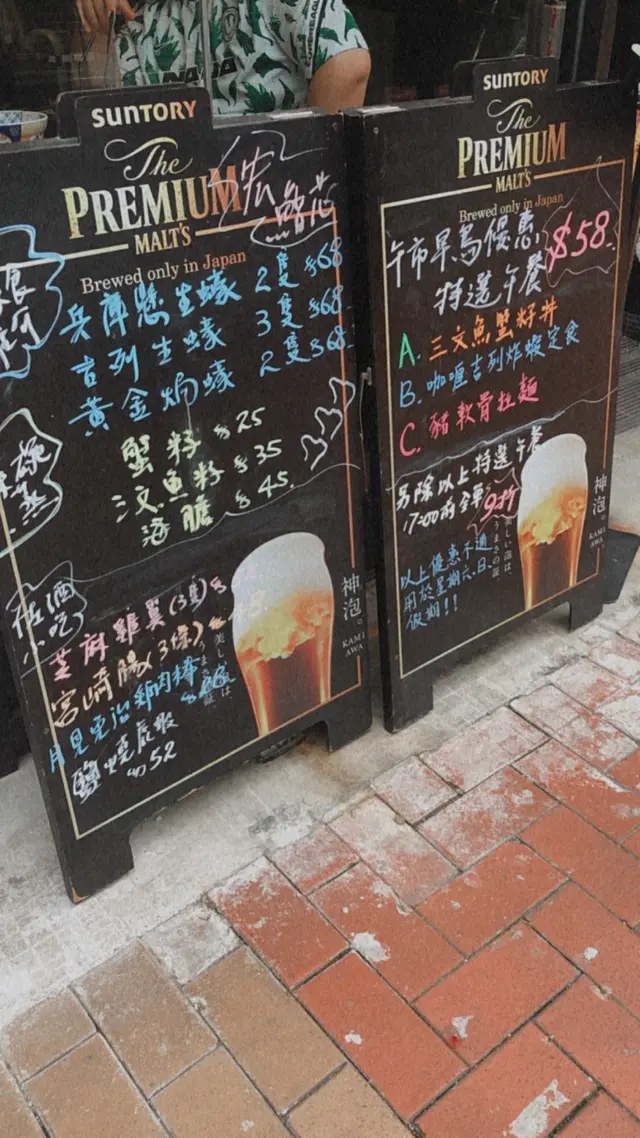 SUNTORY
The
PREMIUM
MALT'S
Brewed only in Japan
兵庫懸生蠔 2隻 $68
吉列生蠔 3隻 $68
黃金焗蠔 2隻 $68
蟹籽 $25
三文魚籽 $35
海膽 $45
佐酒
小吃
芝麻雞翼(3隻)
宮崎腸(3條)
月見唐治雞肉棒
鹽燒
$52
美しい泡は、
うまさの証。
神泡。
KAMI
AWA
SUNTORY
The
PREMIUM
MALT'S
Brewed only in Japan
午市早鳥優惠
特選午餐 $58
A. 三文魚蟹籽丼
B. 咖喱吉列炸蝦定食
C. 豬軟骨拉麵
另除以上特選午餐
17:00前全單9折
以上優惠不適
用於星期六.日.
假期!!
美しい泡は、
うまさの証。
神泡。
KAMI
AWA